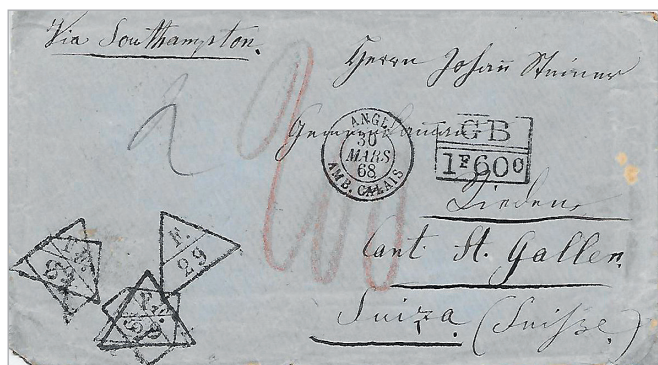 Via Southampton.
Herrn Johañ Steiner
2
ANGL.
30
MARS
68
AMB. CALAIS
GB
1F60c
Cant. St. Gallen.
Suiza. (Suisse.)
F.
29